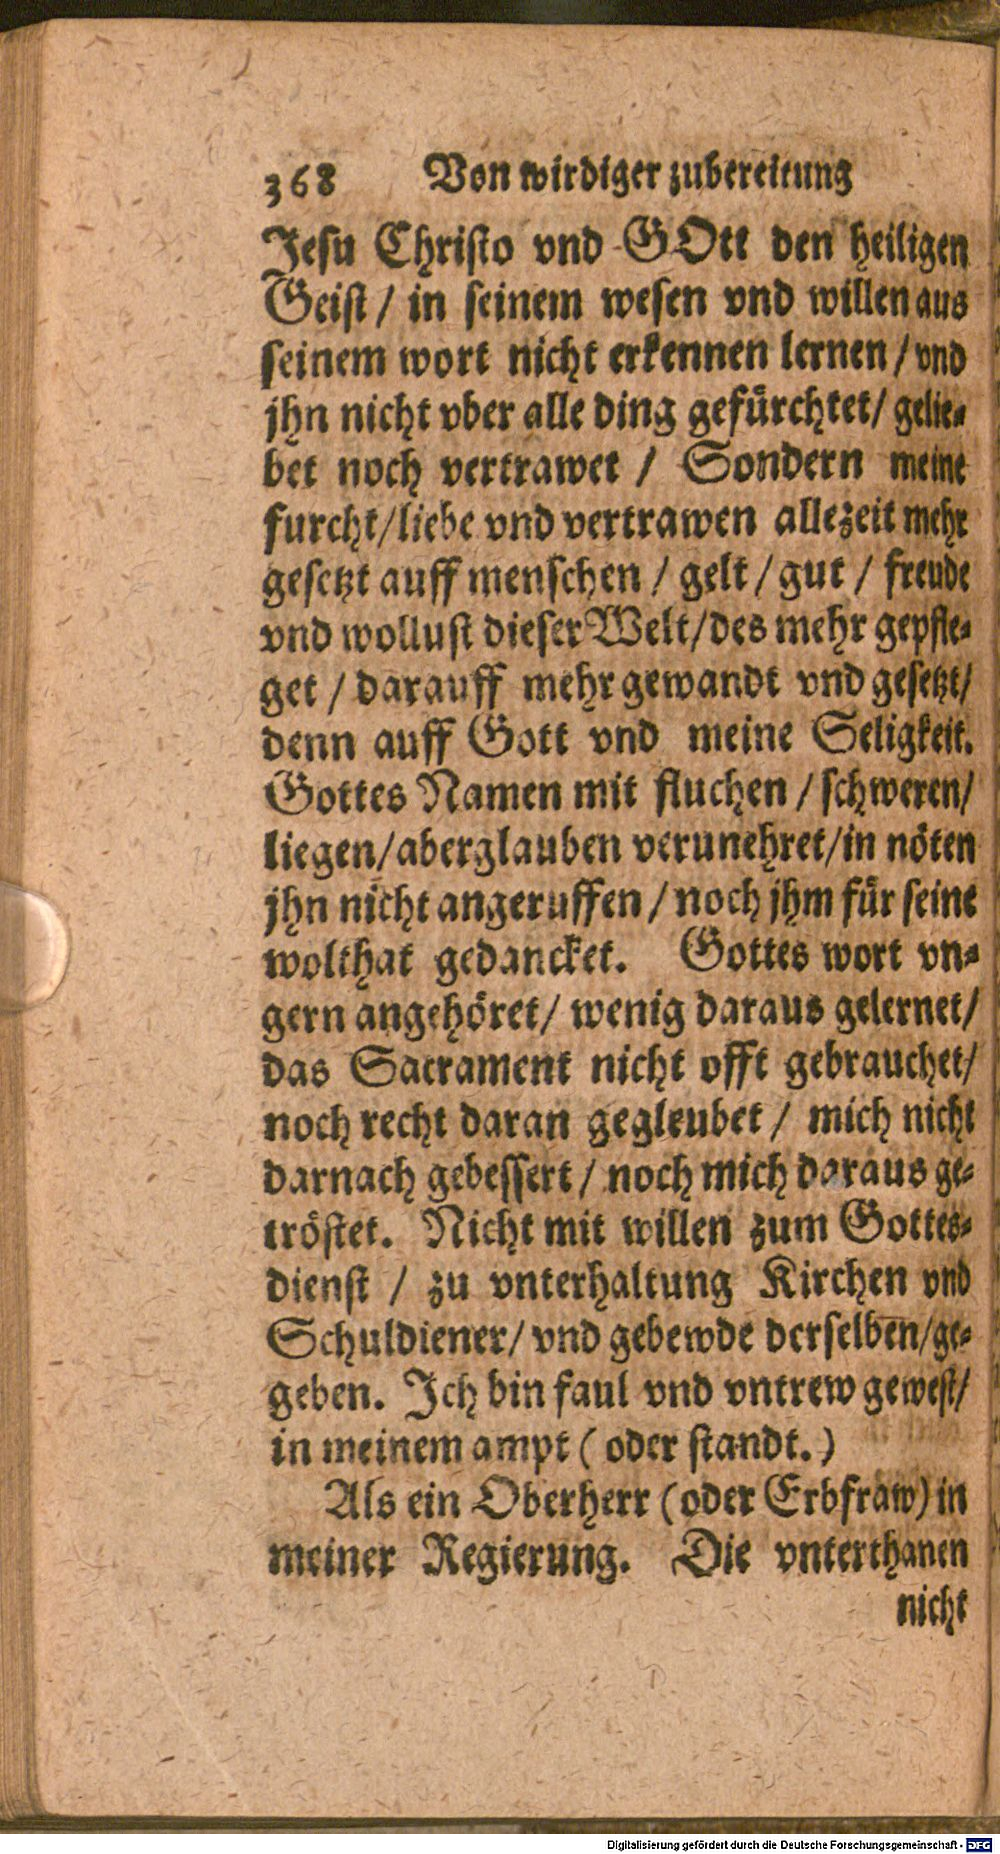 368 Von wirdiger zubereitung
Jesu Christo vnd GOtt den heiligen
Geist / in seinem wesen vnd willen aus
seinem wort nicht erkennen lernen / vnd
jhn nicht vber alle ding gefürchtet / gelie-
bet noch vertrawet / Sondern meine
furcht / liebe vnd vertrawen allezeit mehr
gesetzt auff menschen / gelt / gut / freude
vnd wollust dieser Welt / des mehr gepfle-
get / darauff mehr gewandt vnd gesetzt /
denn auff Gott vnd meine Seligkeit.
Gottes Namen mit fluchen / schweren /
liegen / aberglauben verunehret / in nöten
jhn nicht angeruffen / noch jhm für seine
wolthat gedancket. Gottes wort vn-
gern angehöret / wenig daraus gelernet /
das Sacrament nicht offt gebrauchet /
noch recht daran gegleubet / mich nicht
darnach gebessert / noch mich daraus ge-
tröstet. Nicht mit willen zum Gottes-
dienst / zu vnterhaltung Kirchen vnd
Schuldiener / vnd gebewde derselben / ge-
geben. Ich bin faul vnd vntrew gewest /
in meinem ampt ( oder standt. )
Als ein Oberherr (oder Erbfraw) in
meiner Regierung. Die vnterthanen
nicht
Digitalisierung gefördert durch die Deutsche Forschungsgemeinschaft - DFG